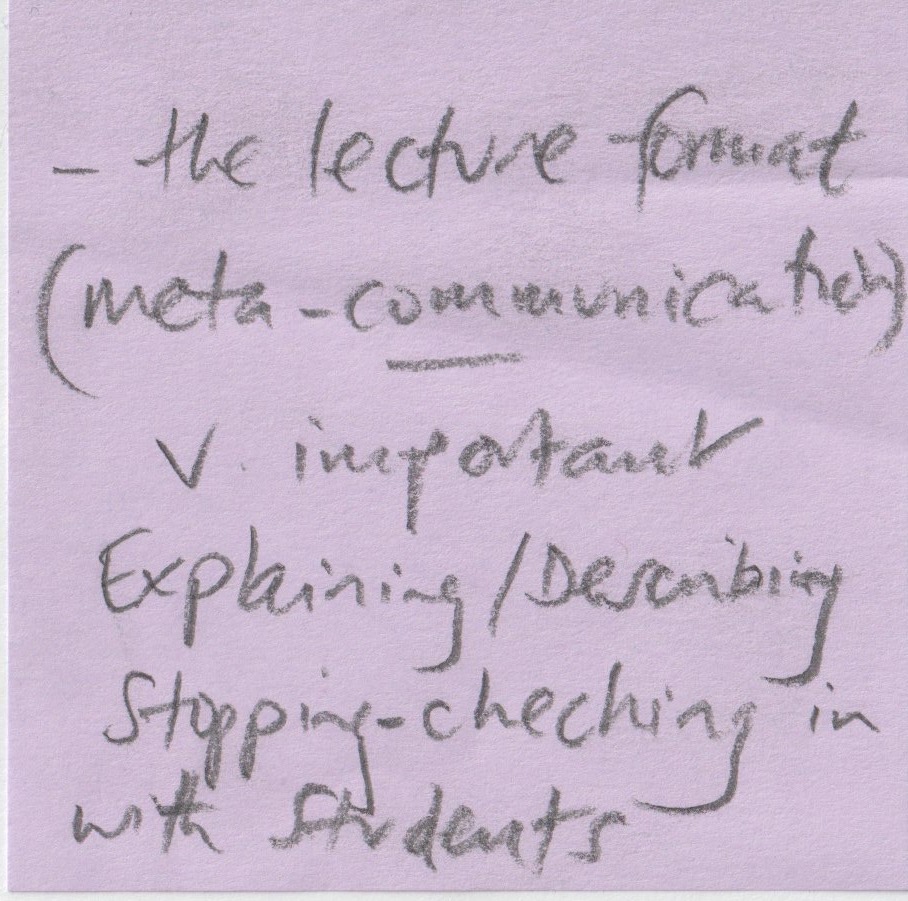 - the lecture format
(meta-communication)
V. important
Explaining/Describing
Stopping-checking in
with Students